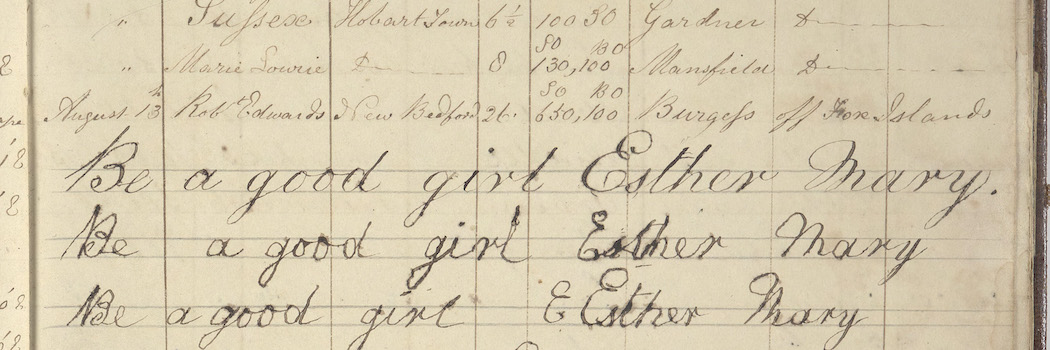 " Sussex Hobart Town 6 ½ 100 30 Gardner D
8 " Marie Lowrie D 8 SO 130, BO 100 Mansfield D
August 13th Robt Edwards New Bedford 26 SO 650, BO 100 Burgess off Fox Islands
Be a good girl Esther Mary.
Be a good girl Esther Mary
Be a good girl E Esther Mary